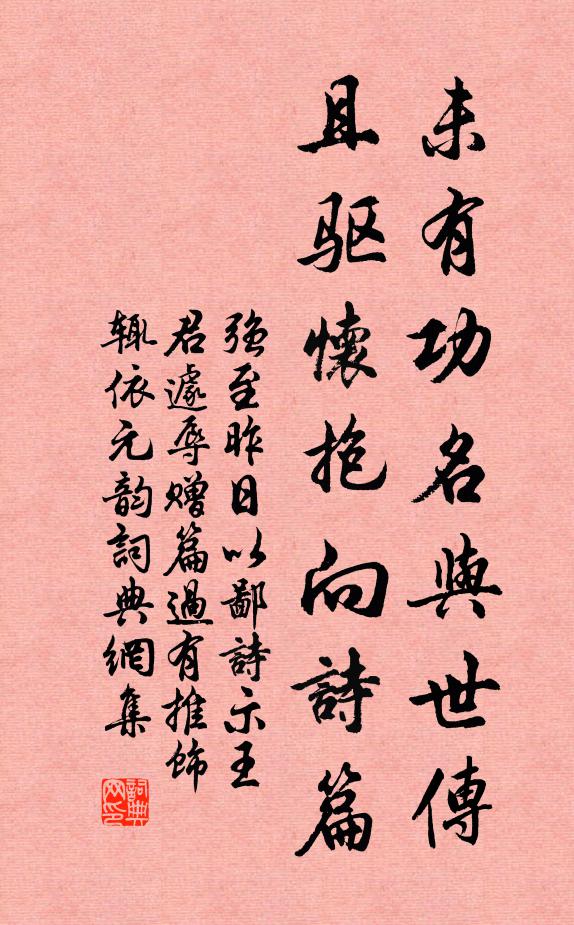 未有功名與世傳
且驱懷抱向詩篇
強至昨日以鄙詩示王
君遽辱赠篇過有推飾
辄依元韵詞典網集
詞典网印